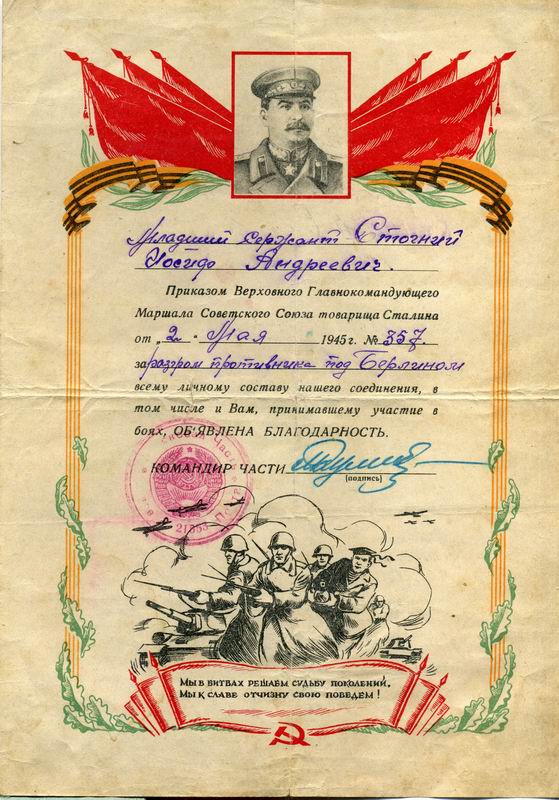 Младший сержант Стогний
Иосиф Андреевич.
Приказом Верховного Главнокомандующего
Маршала Советского Союза товарища Сталина
от „2" Мая 1945 г. № 357
за разгром противника под Берлином
всему личному составу нашего соединения, в
том числе и Вам, принимавшему участие в
боях, ОБ'ЯВЛЕНА БЛАГОДАРНОСТЬ.
КОМАНДИР ЧАСТИ
(подпись)
Мы в битвах решаем судьбу поколений,
Мы к славе отчизну свою поведем!